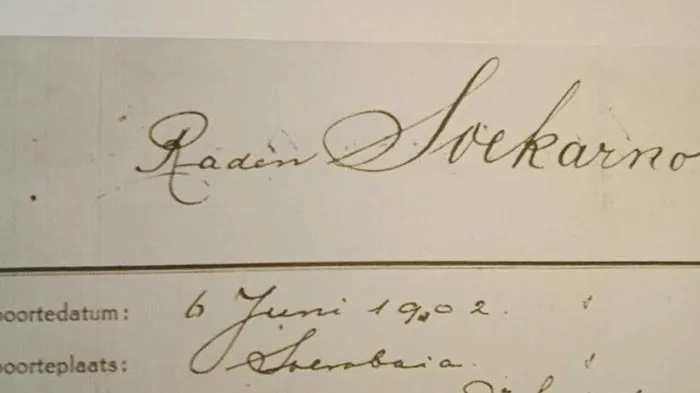 Raden Soekarno
boortedatum: 6 Juni 1902.
boorteplaats: Soerabaia